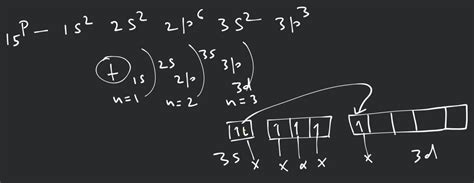 15P - 1s² 2s² 2p⁶ 3s² 3p³
+ 1s 2s 2p 3s 3p 3d
n=1 n=2 n=3
1 1 1 1 1
3s x x x x x 3d